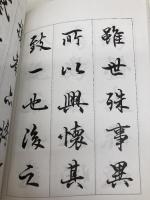 雖世殊事異
所以興懷其
致一也後之